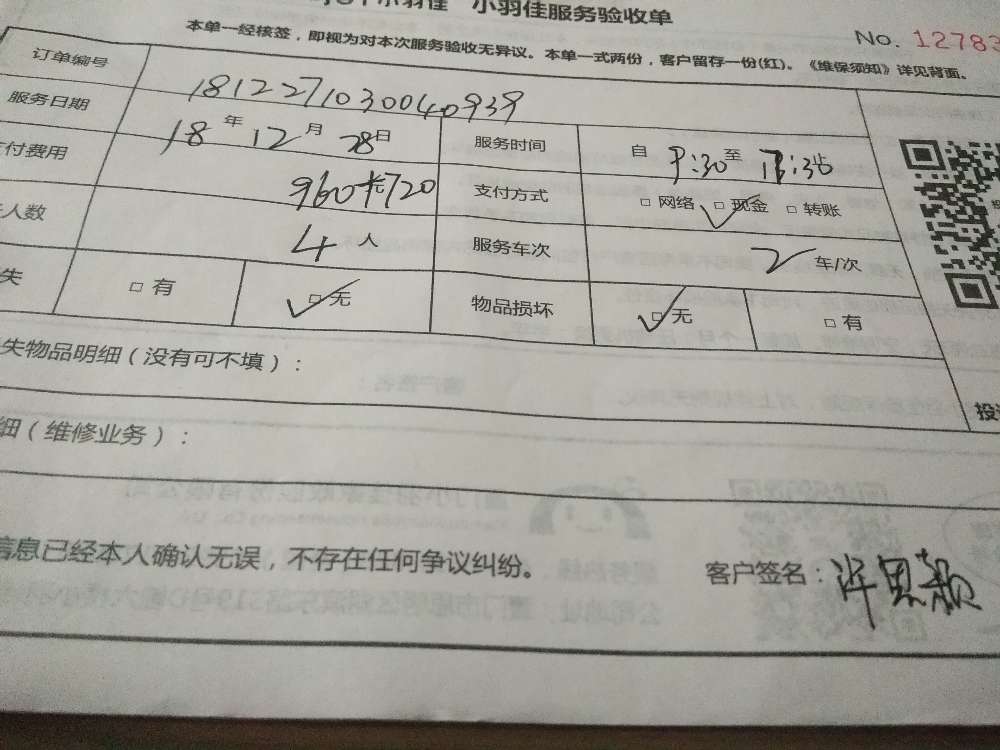 小羽佳服务验收单
本单一经核签，即视为对本次服务验收无异议。本单一式两份，客户留存一份(红)。《维保须知》详见背面。
No. 12783
订单编号 1812271030040939
服务日期 18 年 12 月 28 日 服务时间 自 9:30 至 止
付费用 960 720 支付方式 □ 网络 □ 现金 □ 转账
人数 4 人 服务车次 2 车/次
失 □ 有 □ 无 物品损坏 □ 无 □ 有
失物品明细（没有可不填）：
细（维修业务）：
信息已经本人确认无误，不存在任何争议纠纷。
客户签名：许思颖